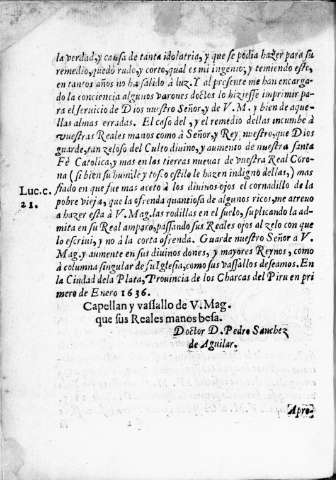 la verdad, y causa de tanta idolatria, y que se podia hazer para su
remedio, quedò rudo, y corto, qual es mi ingenio, y temiendo esto,
en tantos años no ha salido à luz. Y al presente me han encarga-
do la conciencia algunos varones doctos lo hiziesse imprimir para
el seruicio de Dios nuestro Señor, y de V. M. y bien de aque-
llas almas erradas. El caso del, y el remedio dellas incumbe à
vuestras Reales manos como à Señor, y Rey nuestro, que Dios
guarde, tan zeloso del Culto diuino, y aumento de nuestra santa
Fè Catolica, y mas en las tierras nueuas de vuestra Real Coro-
na (si bien su humilde y tosco estilo le hazen indigno dellas,) mas
fiado en que fue mas aceto à los diuinos ojos el cornadillo de la
Luc. c.
21.
pobre vieja, que la ofrenda quantiosa de algunos ricos, me atreuo
a hazer esta à V. Mag. las rodillas en el suelo, suplicando la ad-
mita en su Real amparo, passando sus Reales ojos al zelo con que
lo escriui, y no à la corta ofrenda. Guarde nuestro Señor a V.
Mag. y aumente en sus diuinos dones, y mayores Reynos, como
à columna singular de su Iglesia, como sus vassallos deseamos. En
la Ciudad de la Plata, Prouincia de los Charcas del Piru en pri
mero de Enero 1636.
Capellan y vassallo de V. Mag.
que sus Reales manos besa.
Doctor D. Pedro Sanchez
de Aguilar.
Apro-